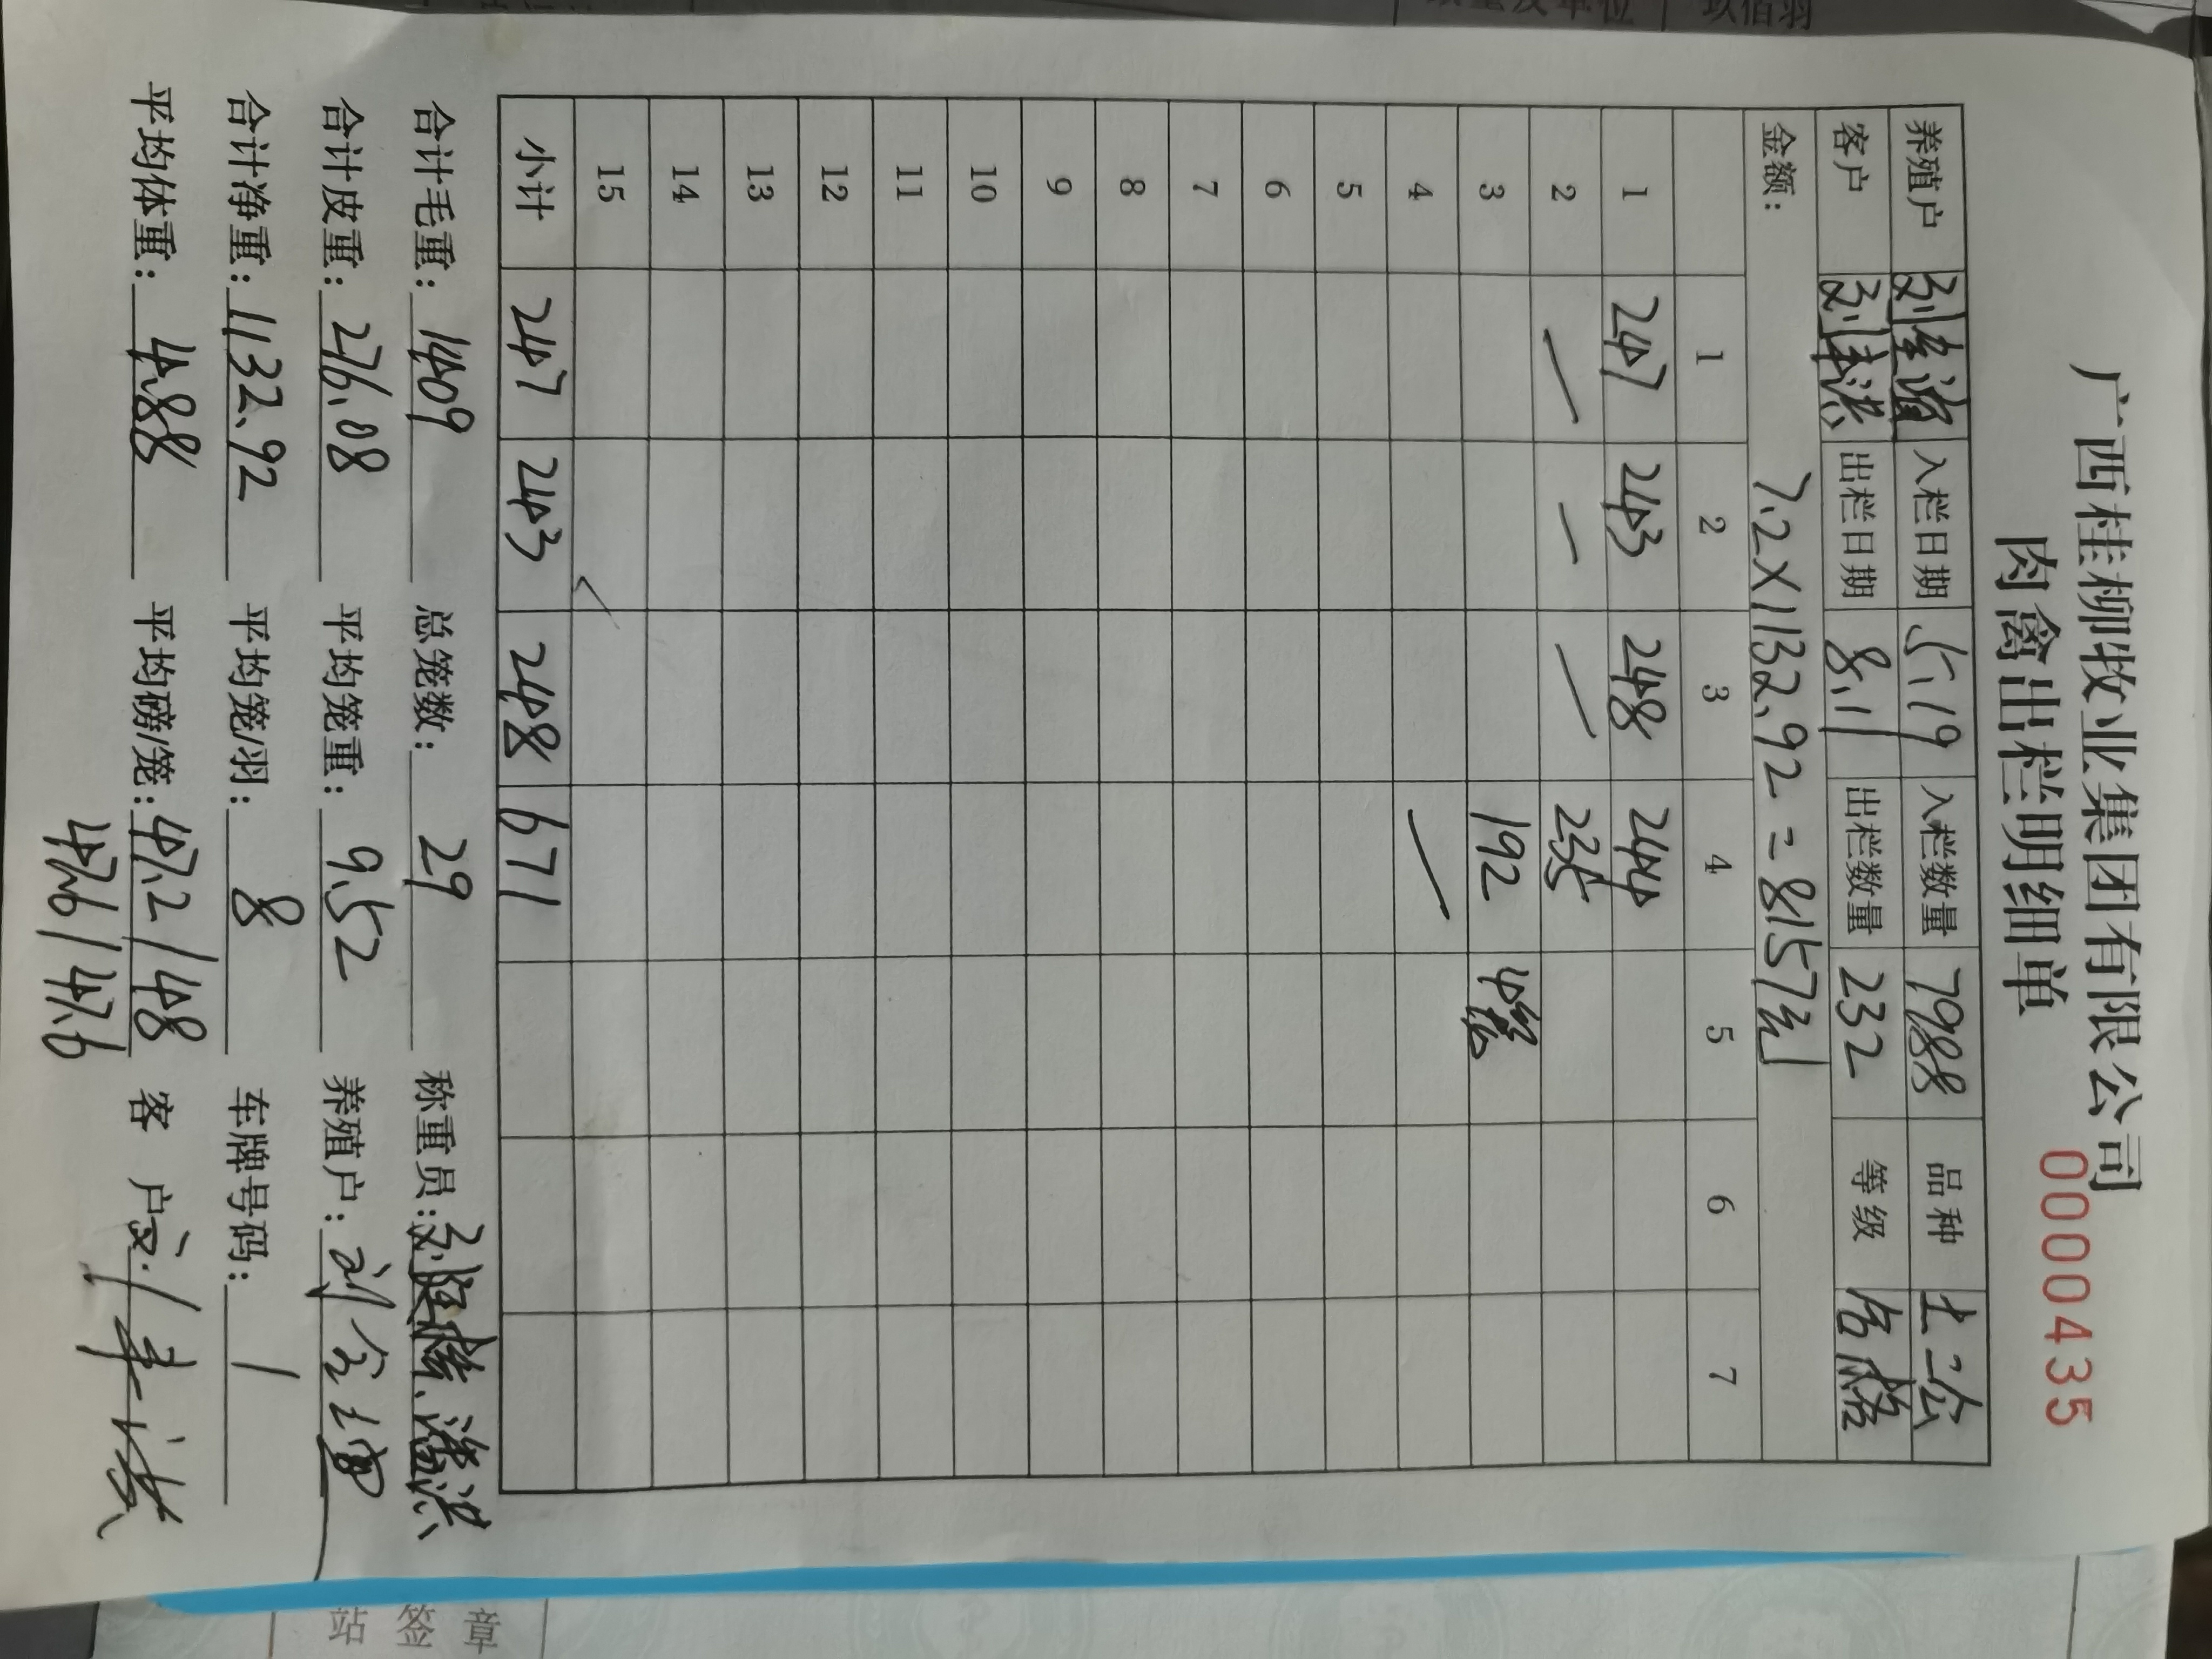 数量及单位 玖佰羽
广西桂柳牧业集团有限公司
肉禽出栏明细单 0000435
养殖户 入栏日期 5.19 入栏数量 7988 品种 土二公
客户 刘華洪 出栏日期 8.11 出栏数量 232 等级 合格
金额: 7.2×1132.92=8157元
1 2 3 4 5 6 7
1 247 243 248 244
2 235
3 192 4笼
4
5
6
7
8
9
10
11
12
13
14
15
小计 247 243 248 671
合计毛重: 1409 总笼数: 29 称重员:
合计皮重: 276.08 平均笼重: 9.52 养殖户:
合计净重: 1132.92 平均笼/羽: 8 车牌号码: /
平均体重: 4.88 平均磅/笼: 47.2/48 客户: 刘華洪
47.6/47.6
站签章